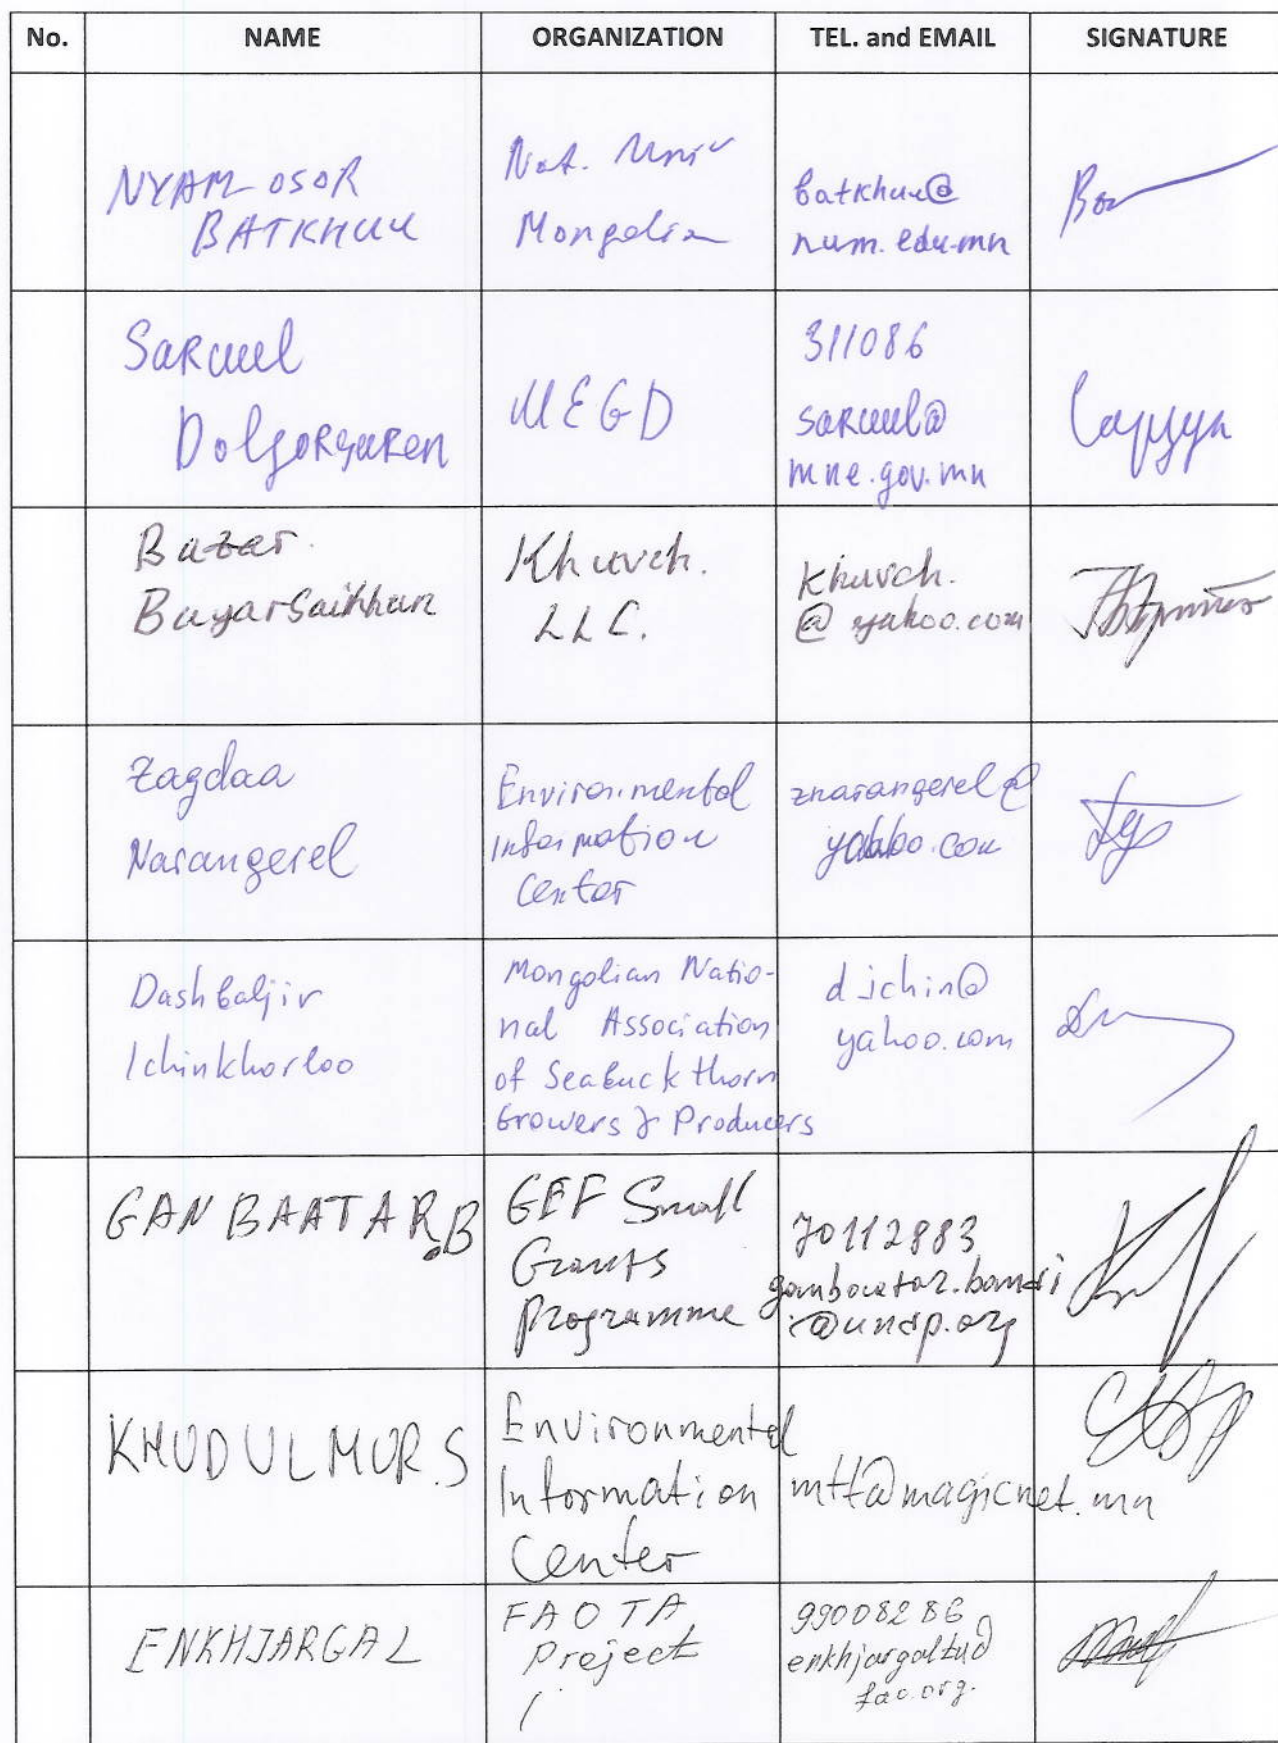 No. NAME ORGANIZATION TEL. and EMAIL SIGNATURE
NYAM-OSOR
BATKHUU
Nat. Univ
Mongolia
batkhuu@
num.edu.mn
Saruul
Dolgorsuren
MEGD
311086
saruul@
mne.gov.mn
Bazar.
Bayarsaikhan
Khuvch.
LLC.
Khuvch.
@yahoo.com
Zagdaa
Narangerel
Environmental
Information
Center
znarangerel@
yahoo.com
Dashbaljir
Ichinkhorloo
Mongolian Natio-
nal Association
of Seabuckthorn
Growers & Producers
d_ichin@
yahoo.com
GANBAATAR.B
GEF Small
Grants
Programme
70112883
@undp.org
KHUDULMUR.S
Environmental
Information
Center
mtt@magicnet.mn
ENKHJARGAL
FAO TA
Project
99008286
fao.org.